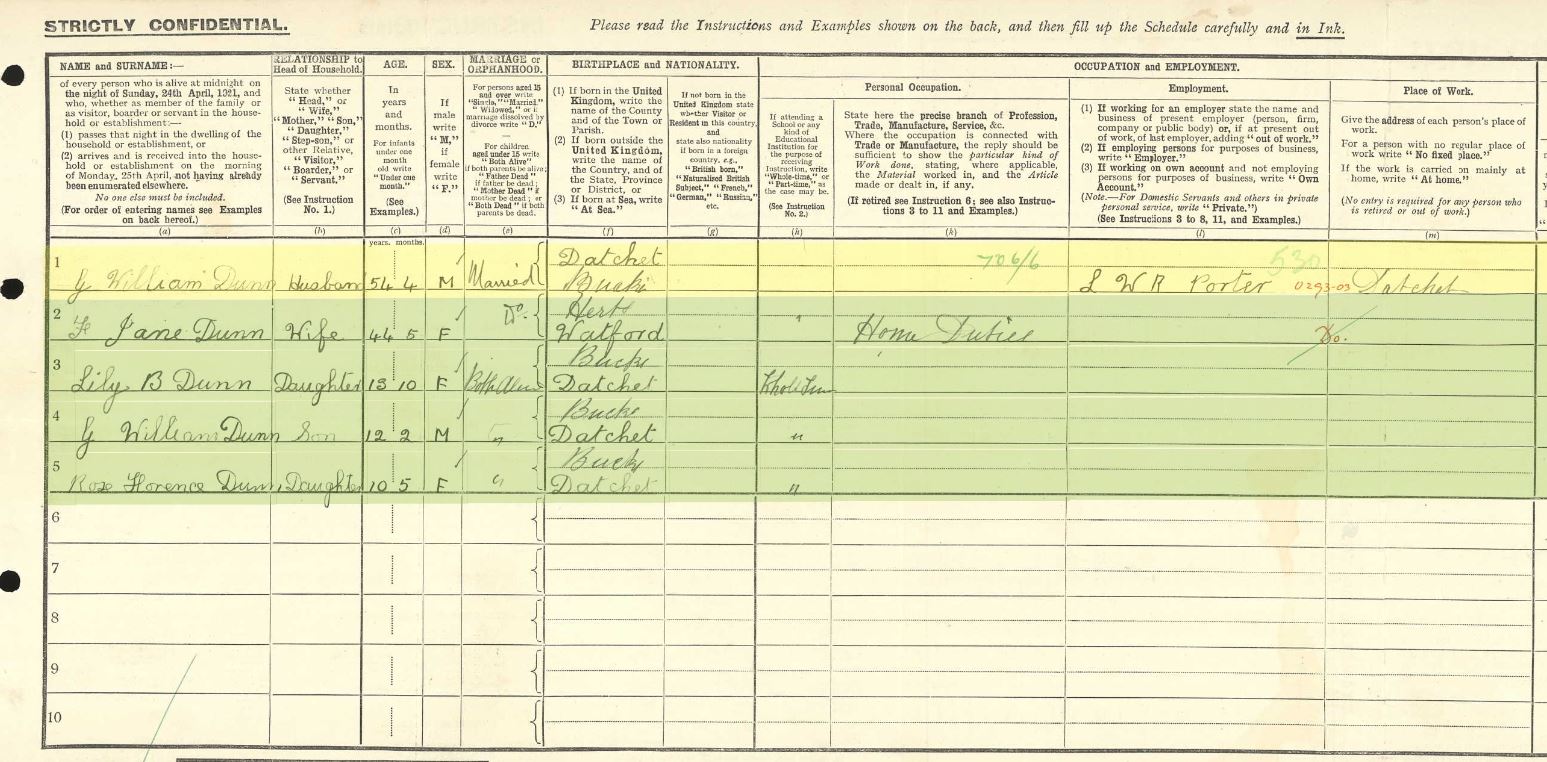 STRICTLY CONFIDENTIAL.
Please read the Instructions and Examples shown on the back, and then fill up the Schedule carefully and in Ink.
NAME and SURNAME:—
of every person who is alive at midnight on
the night of Sunday, 24th April, 1921, and
who, whether as member of the family or
as visitor, boarder or servant in the house-
hold or establishment:—
(1) passes that night in the dwelling of the
household or establishment, or
(2) arrives and is received into the house-
hold or establishment on the morning
of Monday, 25th April, not having already
been enumerated elsewhere.
No one else must be included.
(For order of entering names see Examples
on back hereof.)
(a)
RELATIONSHIP to
Head of Household.
State whether
"Head," or
"Wife,"
"Mother," "Son,"
"Daughter,"
"Step-son," or
other Relative,
"Visitor,"
"Boarder," or
"Servant."
(See Instruction
No. 1.)
(b)
AGE.
In
years
and
months.
For infants
under one
month
old write
"Under one
month."
(See
Examples.)
(c)
years. months.
SEX.
If
male
write
"M,"
if
female
write
"F."
(d)
MARRIAGE or
ORPHANHOOD.
For persons aged 15
and over write
"Single," "Married,"
"Widowed," or if
marriage dissolved by
divorce write "D."
—
For children
aged under 15 write
"Both Alive"
if both parents be alive;
"Father Dead"
if father be dead;
"Mother Dead" if
mother be dead; or
"Both Dead" if both
parents be dead.
(e)
BIRTHPLACE and NATIONALITY.
(1) If born in the United
Kingdom, write the
name of the County
and of the Town or
Parish.
(2) If born outside the
United Kingdom,
write the name of
the Country, and of
the State, Province
or District, or
(3) If born at Sea, write
"At Sea."
(f)
If not born in the
United Kingdom state
whether Visitor or
Resident in this country,
and
state also nationality
if born in a foreign
country, e.g.,
"British born,"
"Naturalised British
Subject," "French,"
"German," "Russian,"
etc.
(g)
OCCUPATION and EMPLOYMENT.
Personal Occupation.
If attending a
School or any
kind of
Educational
Institution for
the purpose of
receiving
Instruction, write
"Whole-time," or
"Part-time," as
the case may be.
(See Instruction
No. 2.)
(h)
State here the precise branch of Profession,
Trade, Manufacture, Service, &c.
Where the occupation is connected with
Trade or Manufacture, the reply should be
sufficient to show the particular kind of
Work done, stating, where applicable,
the Material worked in, and the Article
made or dealt in, if any.
(If retired see Instruction 6; see also Instruc-
tions 3 to 11 and Examples.)
(k)
Employment.
(1) If working for an employer state the name and
business of present employer (person, firm,
company or public body) or, if at present out
of work, of last employer, adding "out of work."
(2) If employing persons for purposes of business,
write "Employer."
(3) If working on own account and not employing
persons for purposes of business, write "Own
Account."
(Note.—For Domestic Servants and others in private
personal service, write "Private.")
(See Instructions 3 to 8, 11, and Examples.)
(l)
Place of Work.
Give the address of each person's place of
work.
For a person with no regular place of
work write "No fixed place."
If the work is carried on mainly at
home, write "At home."
(No entry is required for any person who
is retired or out of work.)
(m)
1 G William Dunn Husban 54 4 M Married Datchet Bucks 706/6 L W R Porter 0293-03 Datchet
2 Jane Dunn Wife 44 5 F Do. Herts Watford Home Duties Do.
3 Lily B Dunn Daughter 13 10 F Both Alive Bucks Datchet
4 G William Dunn Son 12 2 M " Bucks Datchet "
5 Rose Florence Dunn Daughter 10 5 F " Bucks Datchet "
6
7
8
9
10